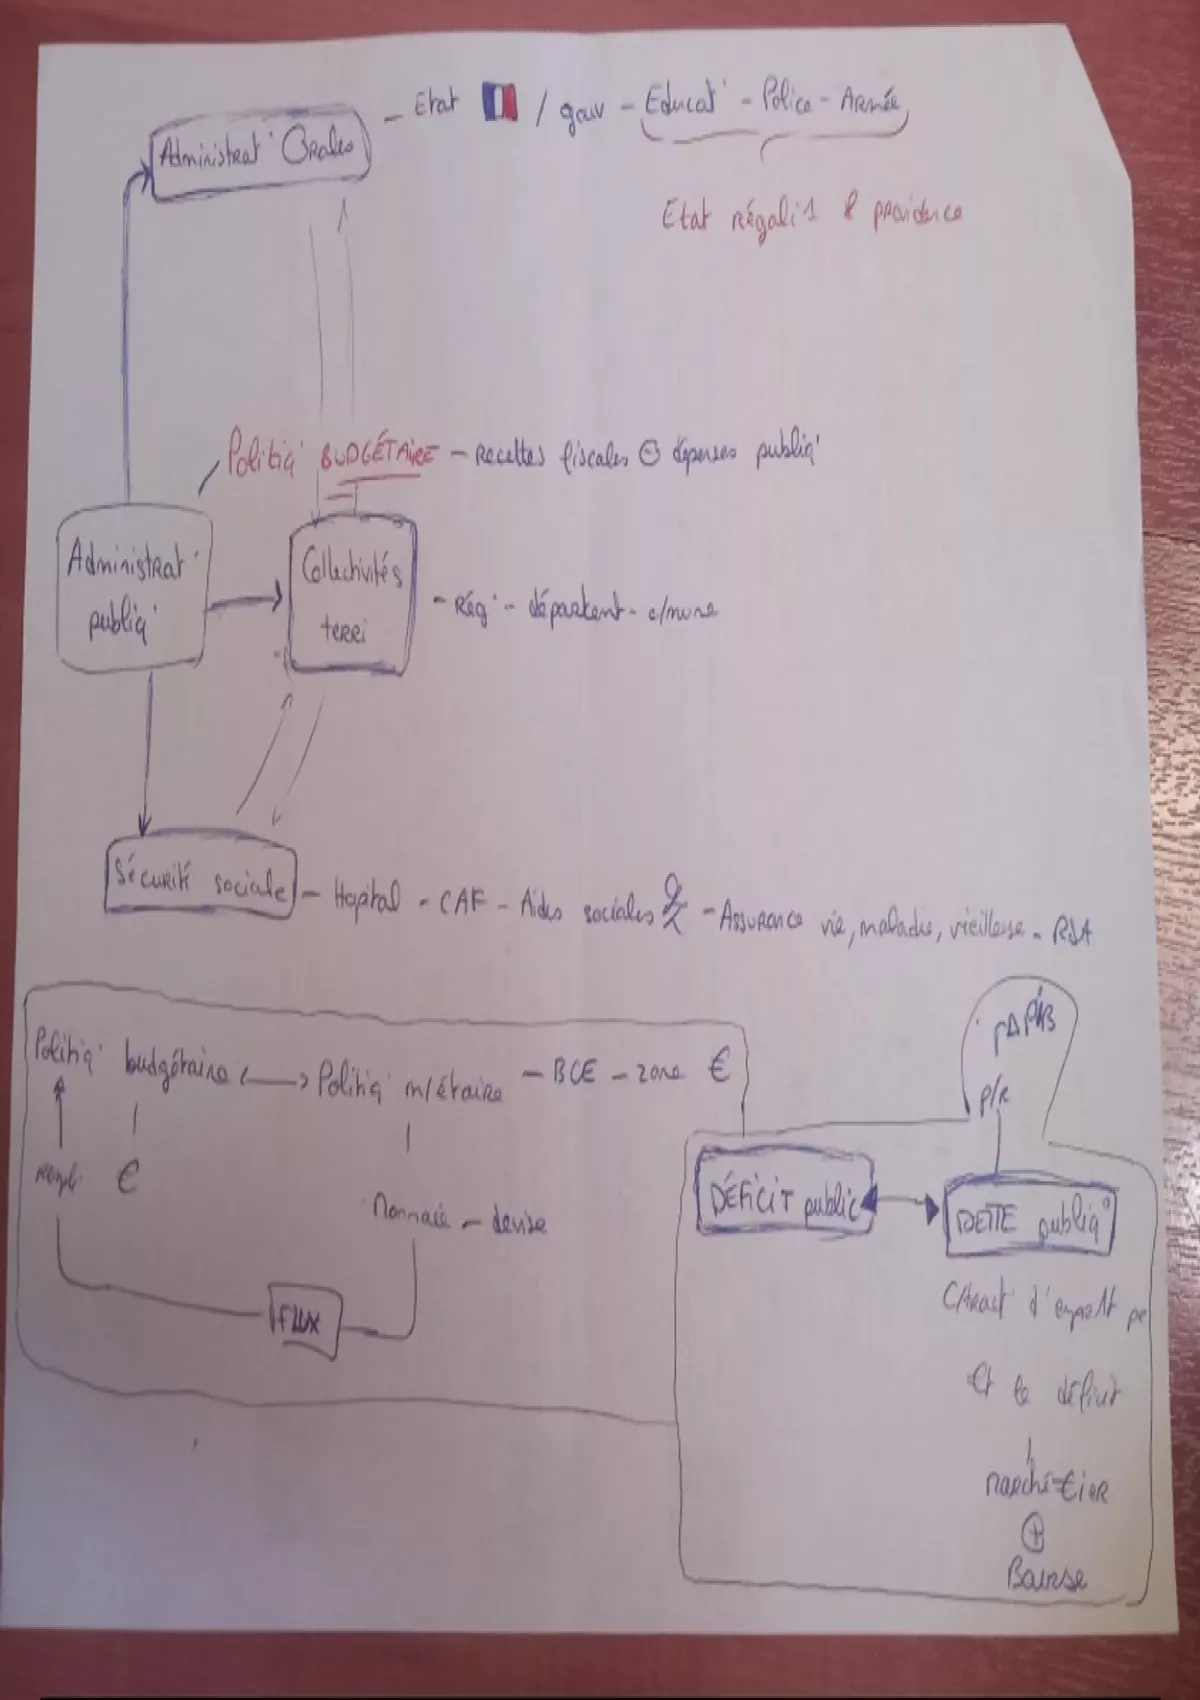 Administrat° Grales
- Etat / gouv - Educat° - Police - Armée
Etat régali1 & providence
Politiq' BUDGÉTAIRE - Recettes fiscales ⊖ dépenses publiq'
Administrat°
publiq'
Collectivités
terri
- Rég° - départent - c/mune
Sécurité sociale - Hopital - CAF - Aides sociales - Assurance vie, maladie, vieillesse - RSA
Politiq' budgétaire <—> Politiq' m/étaire - BCE - zone €
€
Monnaie - devise
FLUX
PIB
p/r
DÉFICIT public
DETTE publiq'
d'
€t le déficit
marché €ier
⊕
Bourse